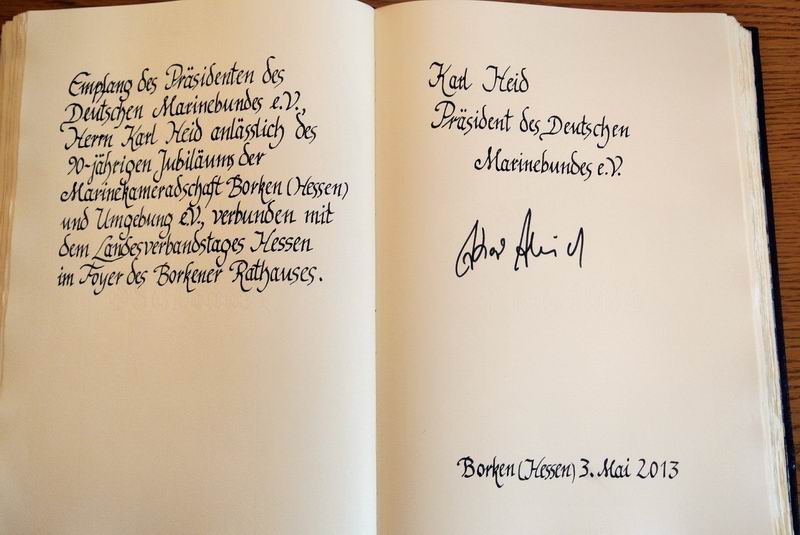 Empfang des Präsidenten des
Deutschen Marinebundes e.V.,
Herrn Karl Heid anlässlich des
90-jährigen Jubiläums der
Marinekameradschaft Borken (Hessen)
und Umgebung e.V., verbunden mit
dem Landesverbandstages Hessen
im Foyer des Borkener Rathauses.
Karl Heid
Präsident des Deutschen
Marinebundes e.V.
Borken (Hessen) 3. Mai 2013